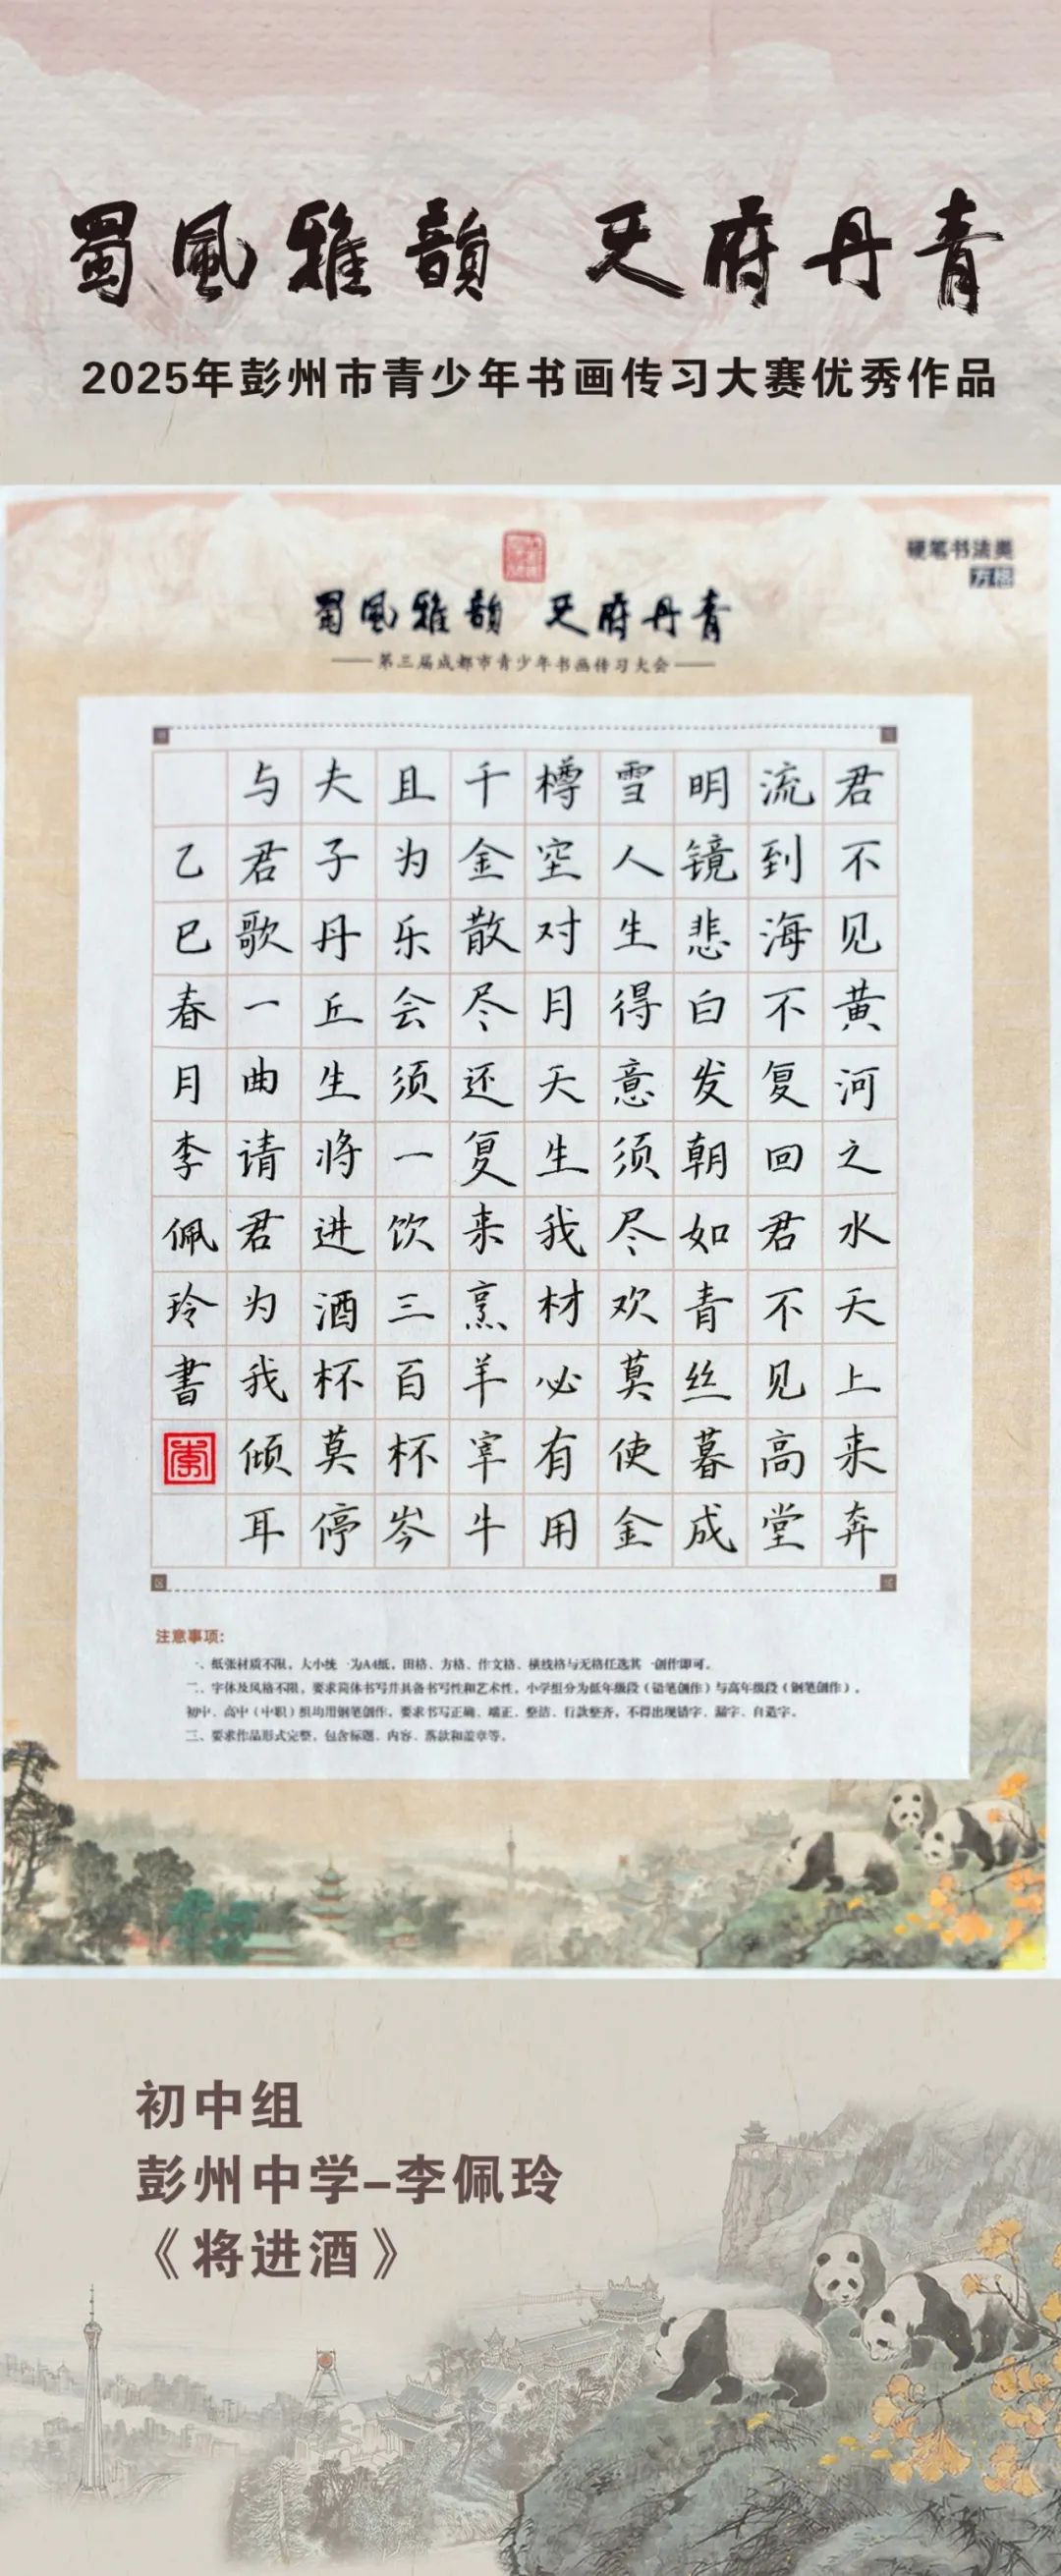 蜀風雅韻 天府丹青
2025年彭州市青少年书画传习大赛优秀作品
硬笔书法类
方格
蜀風雅韻 天府丹青
第三届成都市青少年书画传习大会
君不见黄河之水天上来奔
流到海不复回君不见高堂
明镜悲白发朝如青丝暮成
雪人生得意须尽欢莫使金
樽空对月天生我材必有用
千金散尽还复来烹羊宰牛
且为乐会须一饮三百杯岑
夫子丹丘生将进酒杯莫停
与君歌一曲请君为我倾耳
乙巳春月李佩玲書
注意事项:
一、纸张材质不限，大小统一为A4纸，田格、方格、作文格、横线格与无格任选其一创作即可。
二、字体及风格不限，要求简体书写并具备书写性和艺术性，小学组分为低年级段（铅笔创作）与高年级段（钢笔创作），
初中、高中（中职）组均用钢笔创作，要求书写正确、端正、整洁、行款整齐，不得出现错字、漏字、自造字。
三、要求作品形式完整，包含标题、内容、落款和盖章等。
初中组
彭州中学-李佩玲
《将进酒》